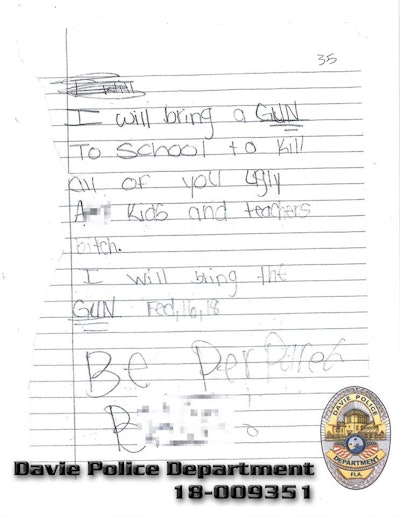 35
I will
I will bring a GUN
To School to Kill
All of you Ugly
A Kids and teachers
bitch.
I will bring the
GUN Feb,16,18
Be Perpared
B
DAVIE POLICE
DEPARTMENT
FLA.
Davie Police Department
18-009351